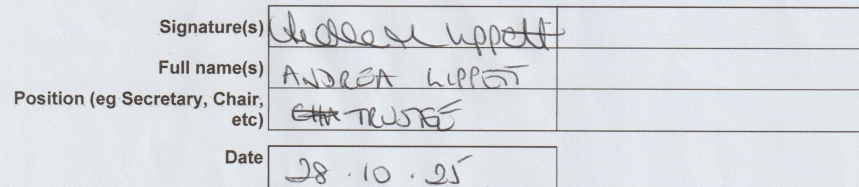 Signature(s) Andrea M Lippett
Full name(s) ANDREA LIPPETT
Position (eg Secretary, Chair,
etc) TRUSTEE
Date 28.10.25